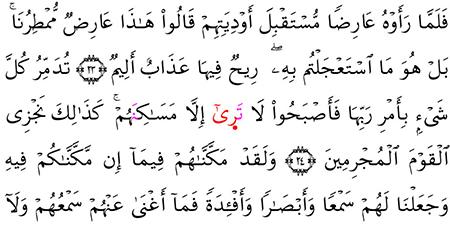 فَلَمَّا رَأَوْهُ عَارِضًا مُّسْتَقْبِلَ أَوْدِيَتِهِمْ قَالُوا۟ هَٰذَا عَارِضٌ مُّمْطِرُنَا ۚ
بَلْ هُوَ مَا ٱسْتَعْجَلْتُم بِهِۦ ۖ رِيحٌ فِيهَا عَذَابٌ أَلِيمٌ ٢٣ تُدَمِّرُ كُلَّ
شَىْءٍۭ بِأَمْرِ رَبِّهَا فَأَصْبَحُوا۟ لَا تَرِىٰٓ إِلَّا مَسَٰكِنَهُمْ ۚ كَذَٰلِكَ نَجْزِى
ٱلْقَوْمَ ٱلْمُجْرِمِينَ ٢٤ وَلَقَدْ مَكَّنَّٰهُمْ فِيمَآ إِن مَّكَّنَّٰكُمْ فِيهِ
وَجَعَلْنَا لَهُمْ سَمْعًا وَأَبْصَٰرًا وَأَفْـِٔدَةً فَمَآ أَغْنَىٰ عَنْهُمْ سَمْعُهُمْ وَلَآ